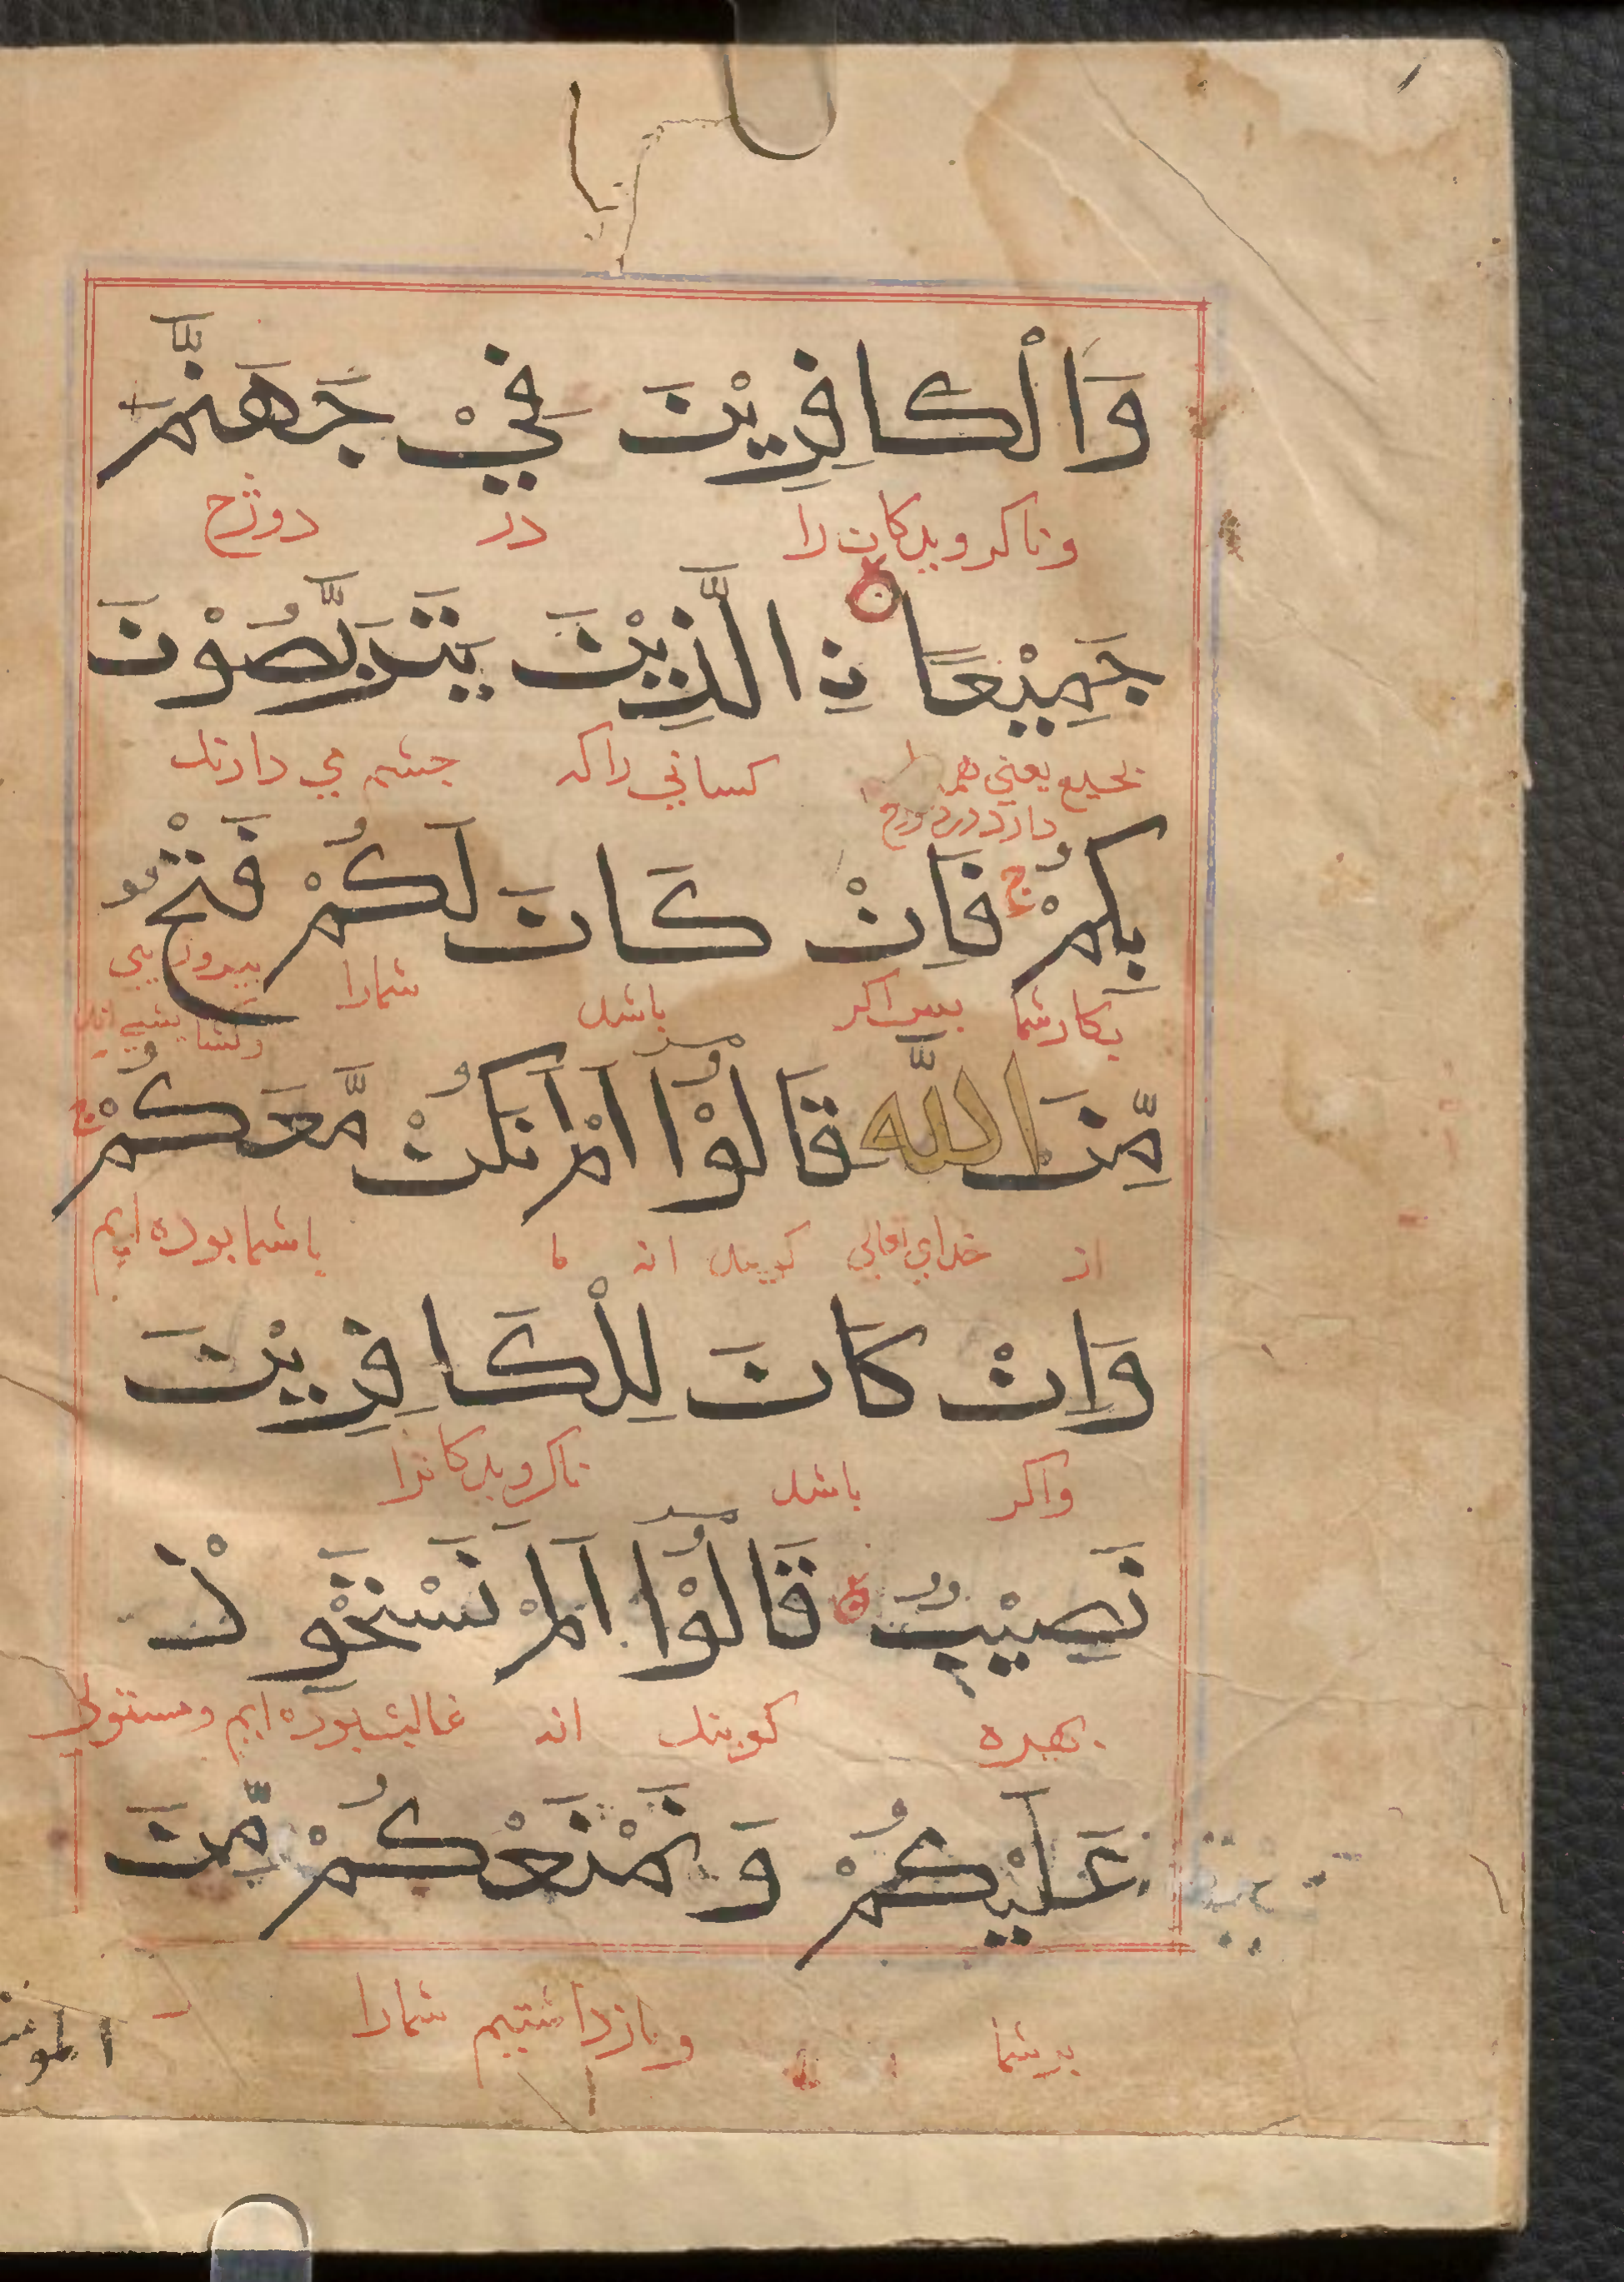 وَالْكَافِرِيْنَ فِيْ جَهَنَّمَ
و ناکرویدکان را در دوزخ
جَمِيْعًا نِ الَّذِيْنَ يَتَرَبَّصُوْنَ
بجمیع یعنی همه کسانی راکه چشم می دارند
بِكُمْ ج فَاِنْ كَانَ لَكُمْ فَتْحٌ
بکار شما پس اکر باشد شمارا پیروزیی
مِّنَ اللّٰهِ قَالُوْٓا اَلَمْ نَكُنْ مَّعَكُمْ ج
از خدای تعالی کویند انه ما باشما بوده ایم
وَاِنْ كَانَ لِلْكَافِرِيْنَ
واکر باشد ناکرویدکانرا
نَصِيْبٌ قَالُوْٓا اَلَمْ نَسْتَحْوِذْ
بهره کویند انه غالب بوده ایم و مستولی
عَلَيْكُمْ وَنَمْنَعْكُمْ مِّنَ
برشما و بازداشتیم شمارا